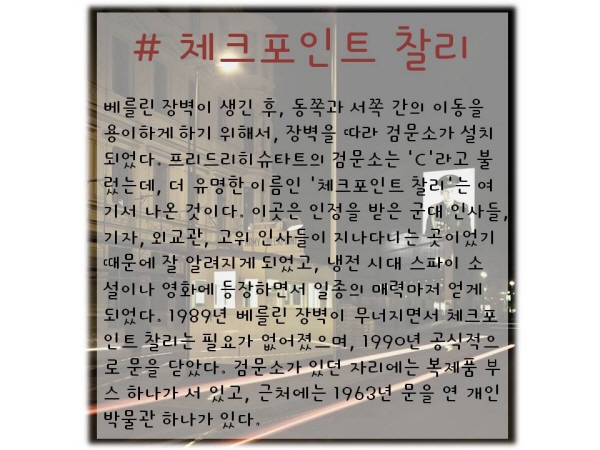 # 체크포인트 찰리
베를린 장벽이 생긴 후, 동쪽과 서쪽 간의 이동을
용이하게 하기 위해서, 장벽을 따라 검문소가 설치
되었다. 프리드리히슈타트의 검문소는 'C'라고 불
렸는데, 더 유명한 이름인 '체크포인트 찰리'는 여
기서 나온 것이다. 이곳은 인정을 받은 군대 인사들,
기자, 외교관, 고위 인사들이 지나다니는 곳이었기
때문에 잘 알려지게 되었고, 냉전 시대 스파이 소
설이나 영화에 등장하면서 일종의 매력마저 얻게
되었다. 1989년 베를린 장벽이 무너지면서 체크포
인트 찰리는 필요가 없어졌으며, 1990년 공식적으
로 문을 닫았다. 검문소가 있던 자리에는 복제품 부
스 하나가 서 있고, 근처에는 1963년 문을 연 개인
박물관 하나가 있다.